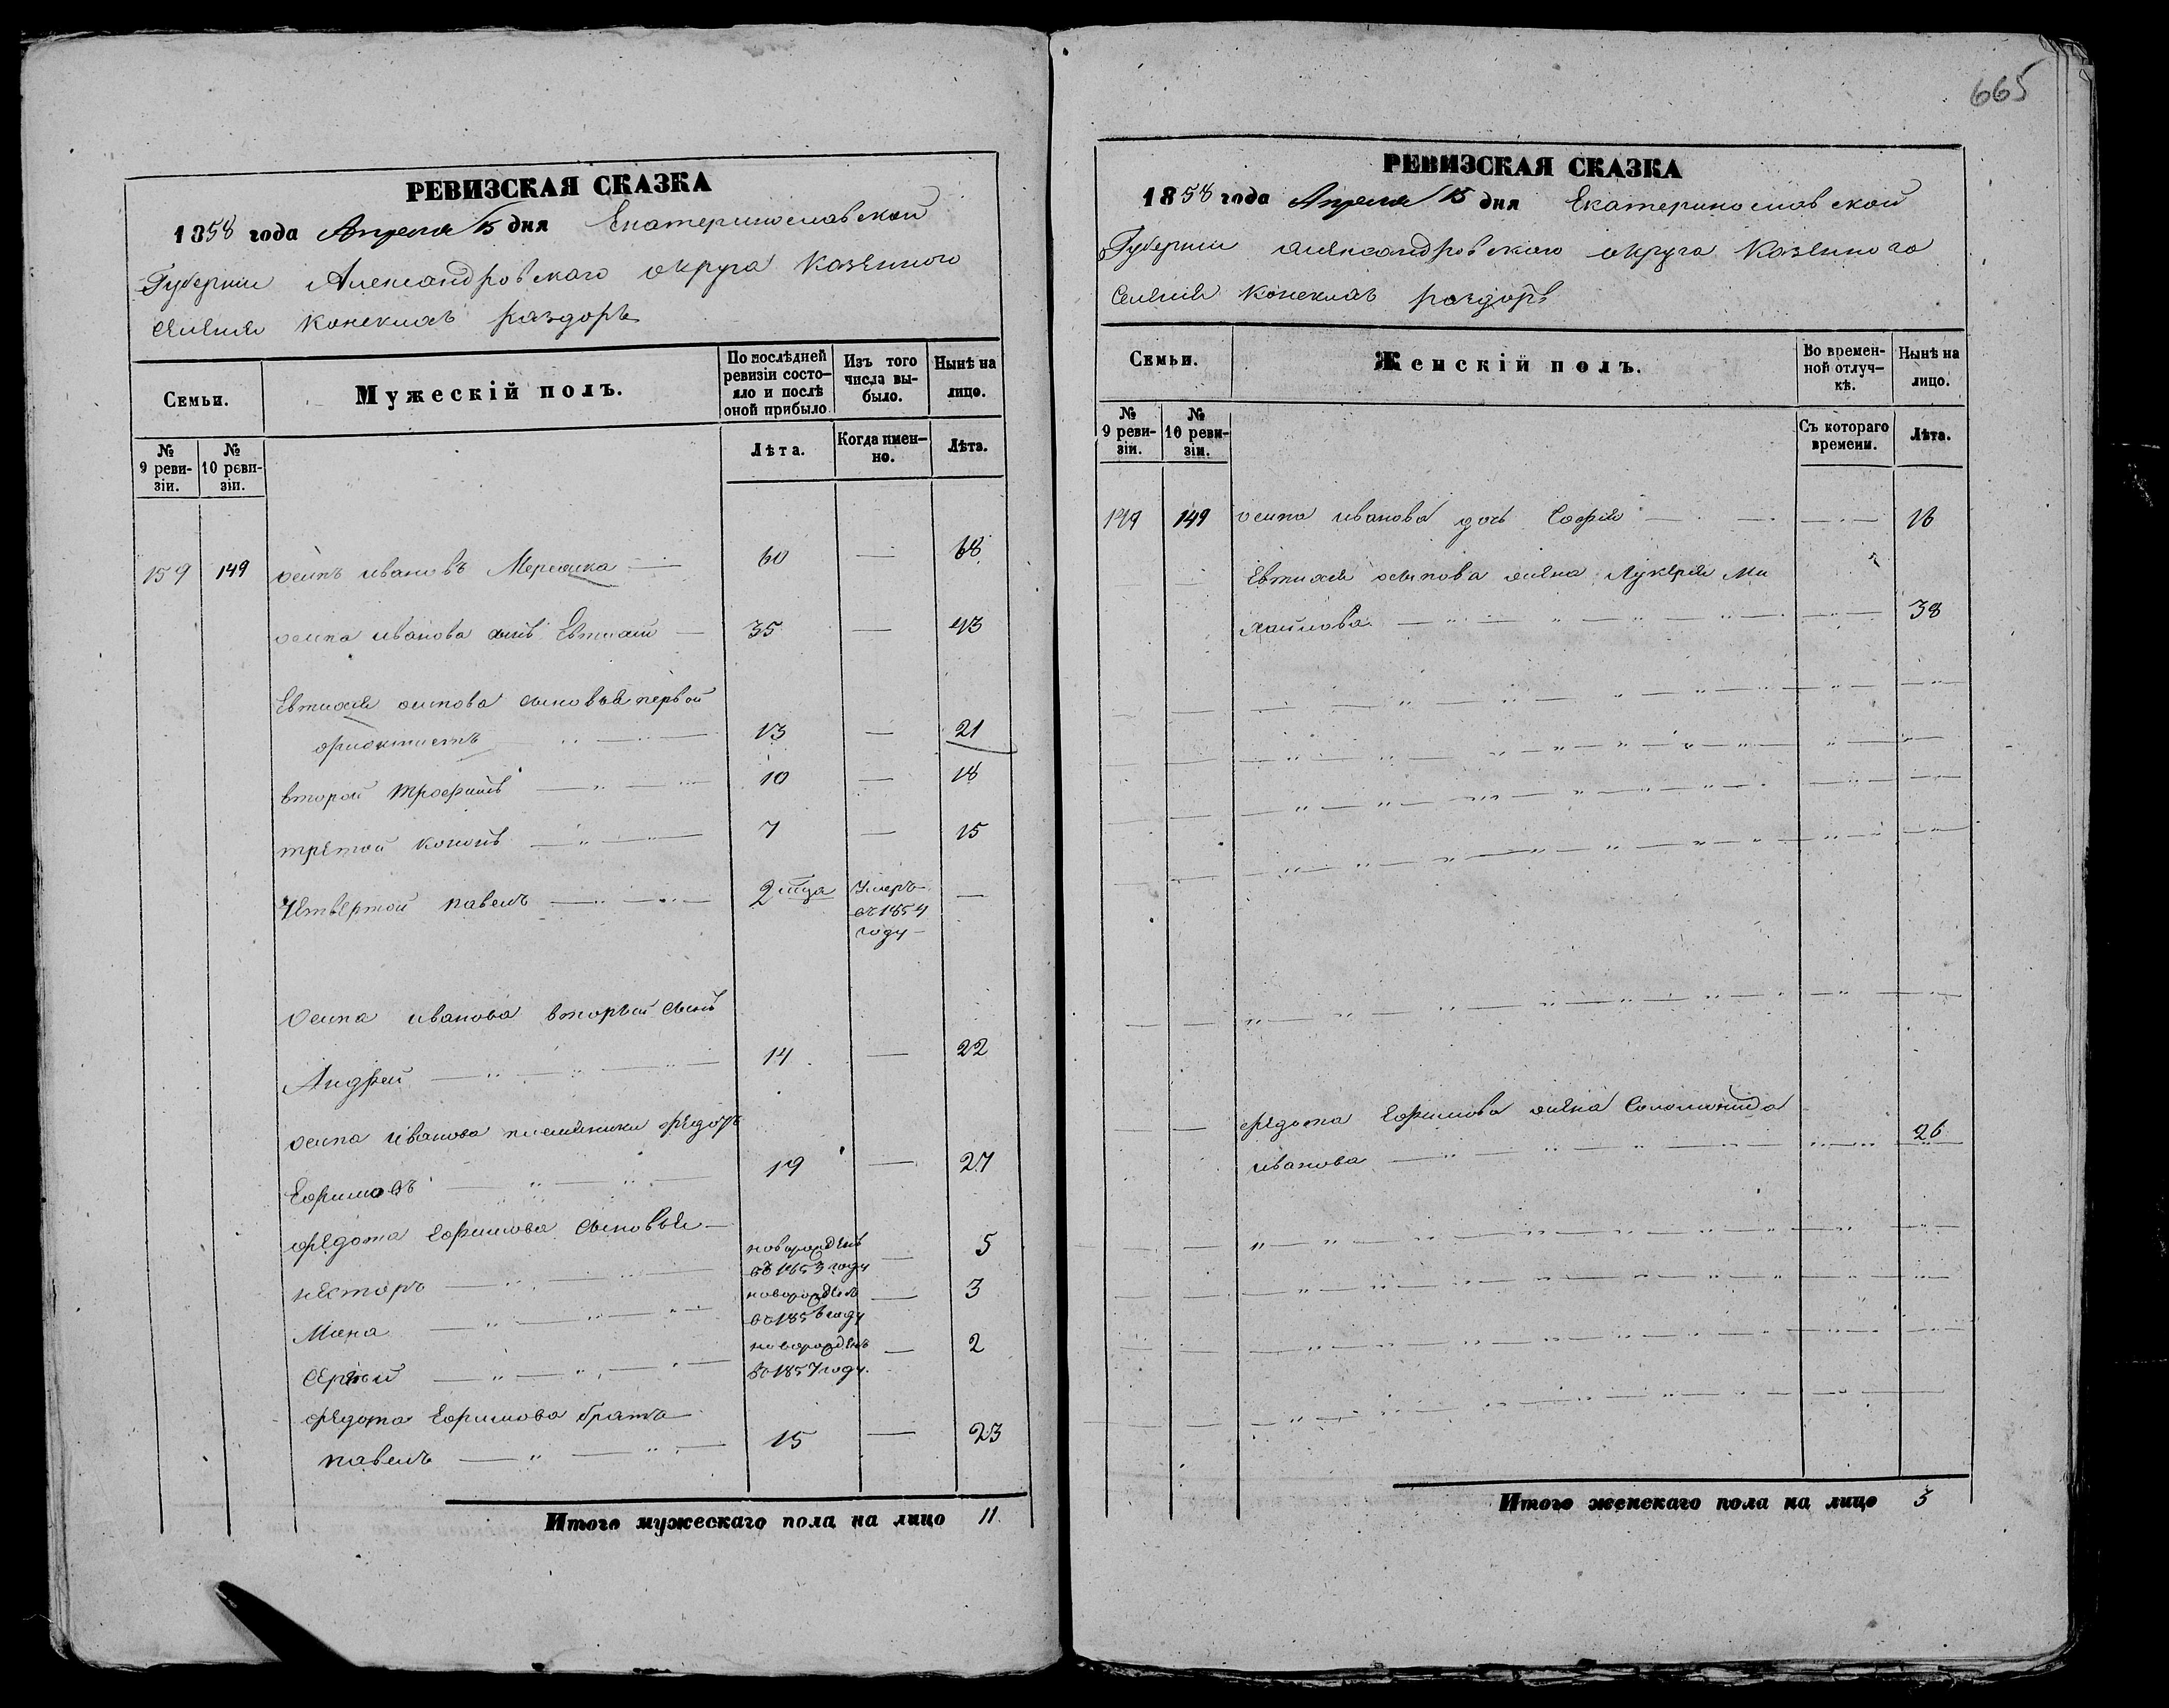 665
РЕВИЗСКАЯ СКАЗКА
1858 года Апреля 15 дня Екатеринославской
Губернии Александровскаго округа казенного
селения Конекихъ раздоръ
Семьи.
Мужескій полъ.
По послѣдней ревизіи состо-
яло и послѣ оной прибыло.
Изъ того числа вы-
было.
Нынѣ на лицо.
№ 9 реви-
зіи.
№ 10 реви-
зіи.
Лѣта.
Когда имен-
но.
Лѣта.
159 149 осипъ ивановъ Мережка 60 — 68
осипа иванова сынъ Евтихий — 35 — 43
Евтихия осипова сыновья первой
фиоктистъ 13 — 21
второй трофимъ 10 — 18
третой кононъ 7 — 15
Четвертой павелъ 2 мца Умеръ въ 1854 году —
Осипа иванова вторый сынъ
Андрей 14 — 22
осипа иванова племяники федотъ
Ефимовъ 19 — 27
федота Ефимова сыновья —
несторъ новорожденъ въ 1853 году — 5
Мина новорожден въ 1856 году — 3
Сергий новорожденъ въ 1857 году. — 2
федота Ефимова братъ
павелъ 15 — 23
Итого мужескаго пола на лицо 11.
РЕВИЗСКАЯ СКАЗКА
1858 года Апреля 15 дня Екатеринославской
Губернии александровского округа казеного
Селения Конекихъ раздоръ
Семьи.
Женскій полъ.
Во времен-
ной отлуч-
кѣ.
Нынѣ на лицо.
№ 9 реви-
зіи.
№ 10 реви-
зіи.
Съ котораго времени.
Лѣта.
149 149 осипа иванова дочь София — 18
Евтихия осипова жена Лукерия Ми
хайлова 38
федота Ефимова жена Соломонида
иванова 26
Итого женскаго пола на лицо 3